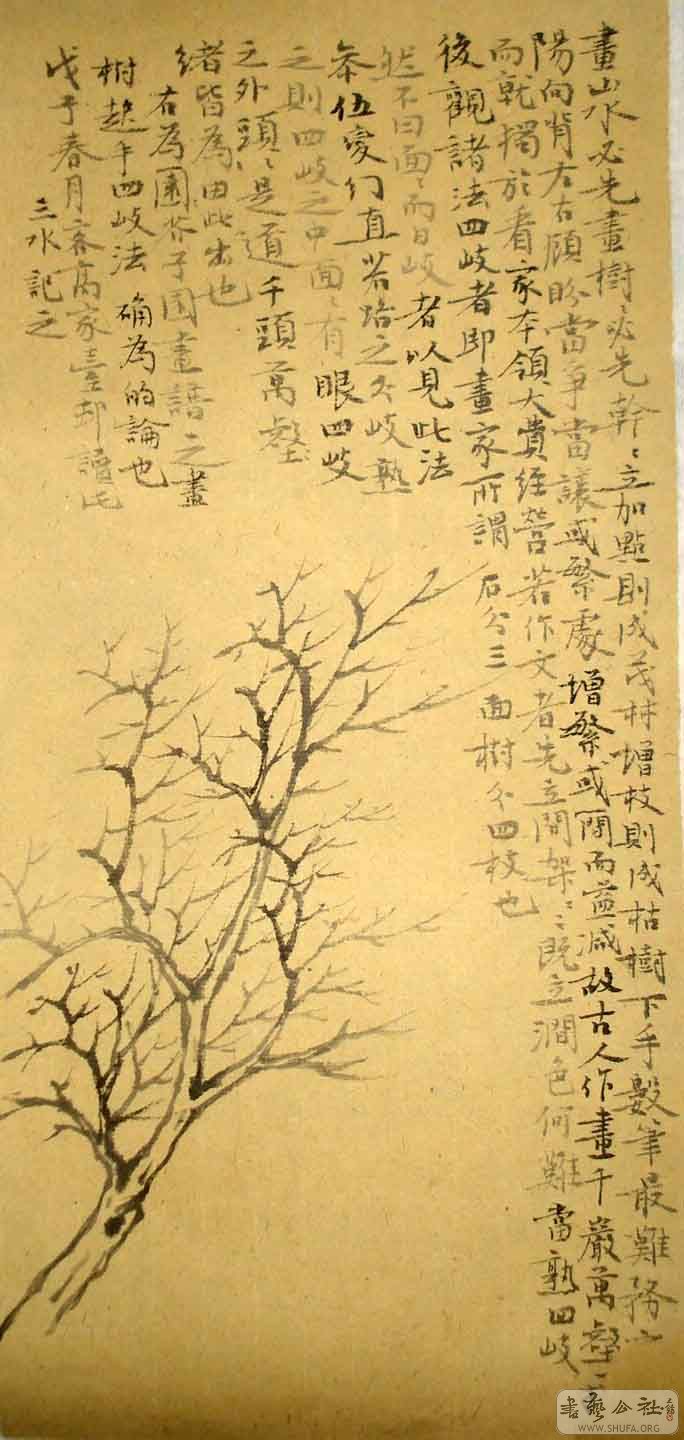 畫山水必先畫樹〻必先幹〻立加點則成茂林增枝則成枯樹下手數筆最難務
陽向背左右顧盼當爭當讓或繁處增繁或閒而益減故古人作畫千巖萬壑
而就獨於看家本領大費經營若作文者先立間架〻〻既立潤色何難當熟四歧
後觀諸法四歧者即畫家所謂石分三面樹分四枝也
然不曰面〻而曰歧者以見此法
參伍變幻直若路之分歧熟
之則四歧之中面〻有眼四歧
之外頭〻是道千頭萬壑
緒皆為由此出也
右為園芥子園畫譜之畫
樹起手四歧法确為的論也
戊子春月客高家臺邨讀此
三水記之
書藝公社
WWW.SHUFA.ORG